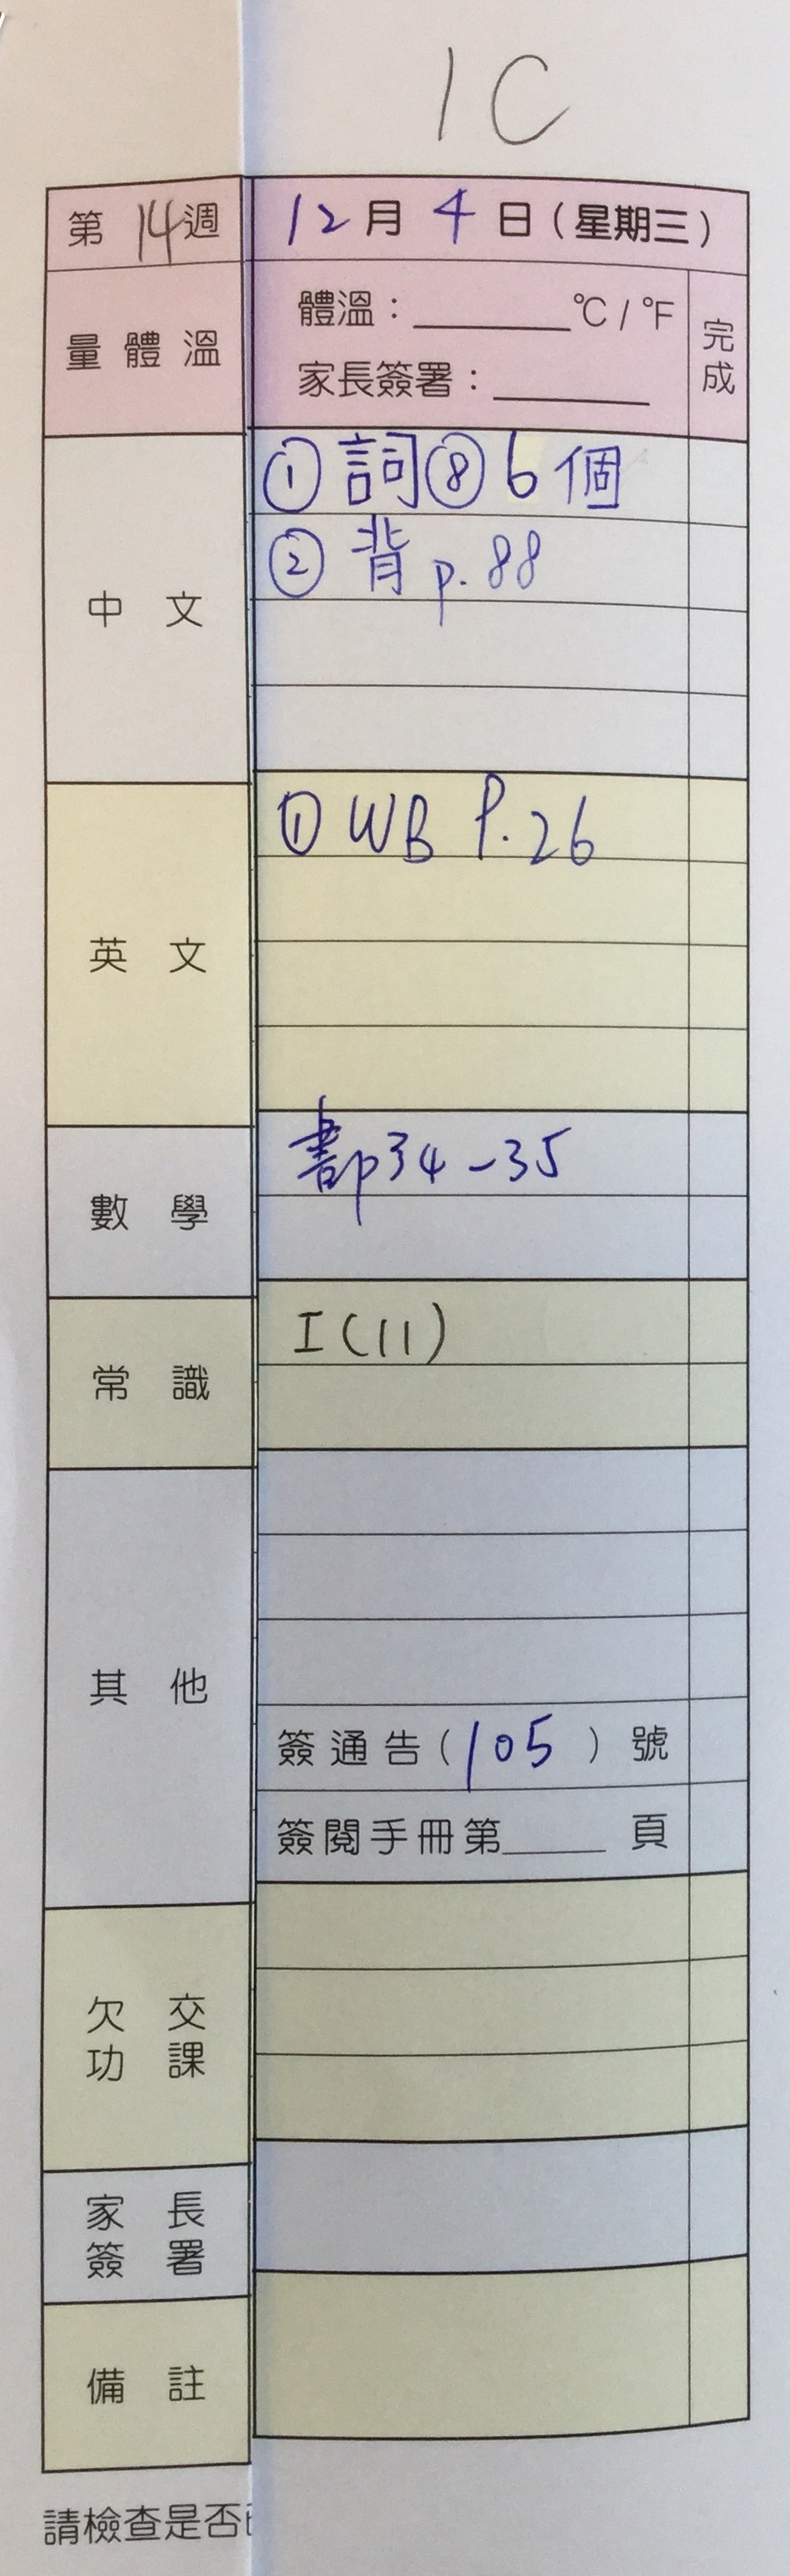 1C
第 14 週 12 月 4 日 (星期三)
量體溫
體溫：______°C / °F
家長簽署：______
完成
中文
① 詞⑧ 6個
② 背 p.88
英文
① WB P.26
數學
書p34-35
常識
I(11)
其他
簽通告(105)號
簽閱手冊第____頁
欠交
功課
家長
簽署
備註
請檢查是否